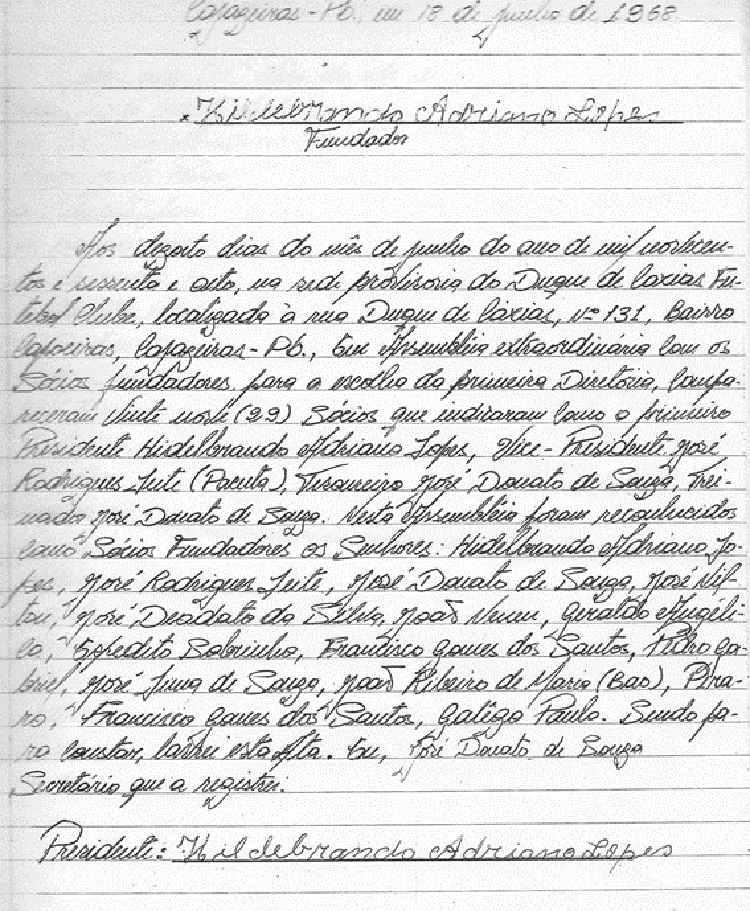 Cajazeiras - Pb, em 18 de junho de 1968
Hildebrando Adriano Lopes
Fundador
Aos dezoito dias do mês de junho do ano de mil novecen-
tos e sessenta e oito, na sede provisoria do Duque de Caxias Fu-
tebol Clube, localizada à rua Duque de Caxias, nº 131, Bairro
Capoeiras, Cajazeiras - Pb., em Assembléia extraordinária com os
Sócios fundadores, para a escolha da primeira Diretória, Compa-
receram Vinte nove (29) Sócios que indicaram como o primeiro
Presidente Hidelbrando Adriano Lopes, Vice - Presidente José
Rodrigues Leite (Pacuta), Tesoureiro José Donato de Souza, Trei-
nador José Donato de Souza. Nesta Assembléia foram reconhecidos
como Sócios Fundadores os Senhores: Hidelbrando Adriano Lo-
pes, José Rodrigues Leite, José Donato de Souza, José Nil-
ton, José Deodato da Silva, João Nenen, Geraldo Angéli-
co, Expedito Sobrinho, Francisco Gomes dos Santos, Pedro Ga-
briel, José Juna de Souza, João Ribeiro de Maria (Bao),
Francisco Gomes dos Santos, Galêgo Paulo. Sendo pa-
ra constar, lavrei esta Ata. Eu, José Donato de Souza
Secretário que a registrei.
Presidente: Hildebrando Adriano Lopes